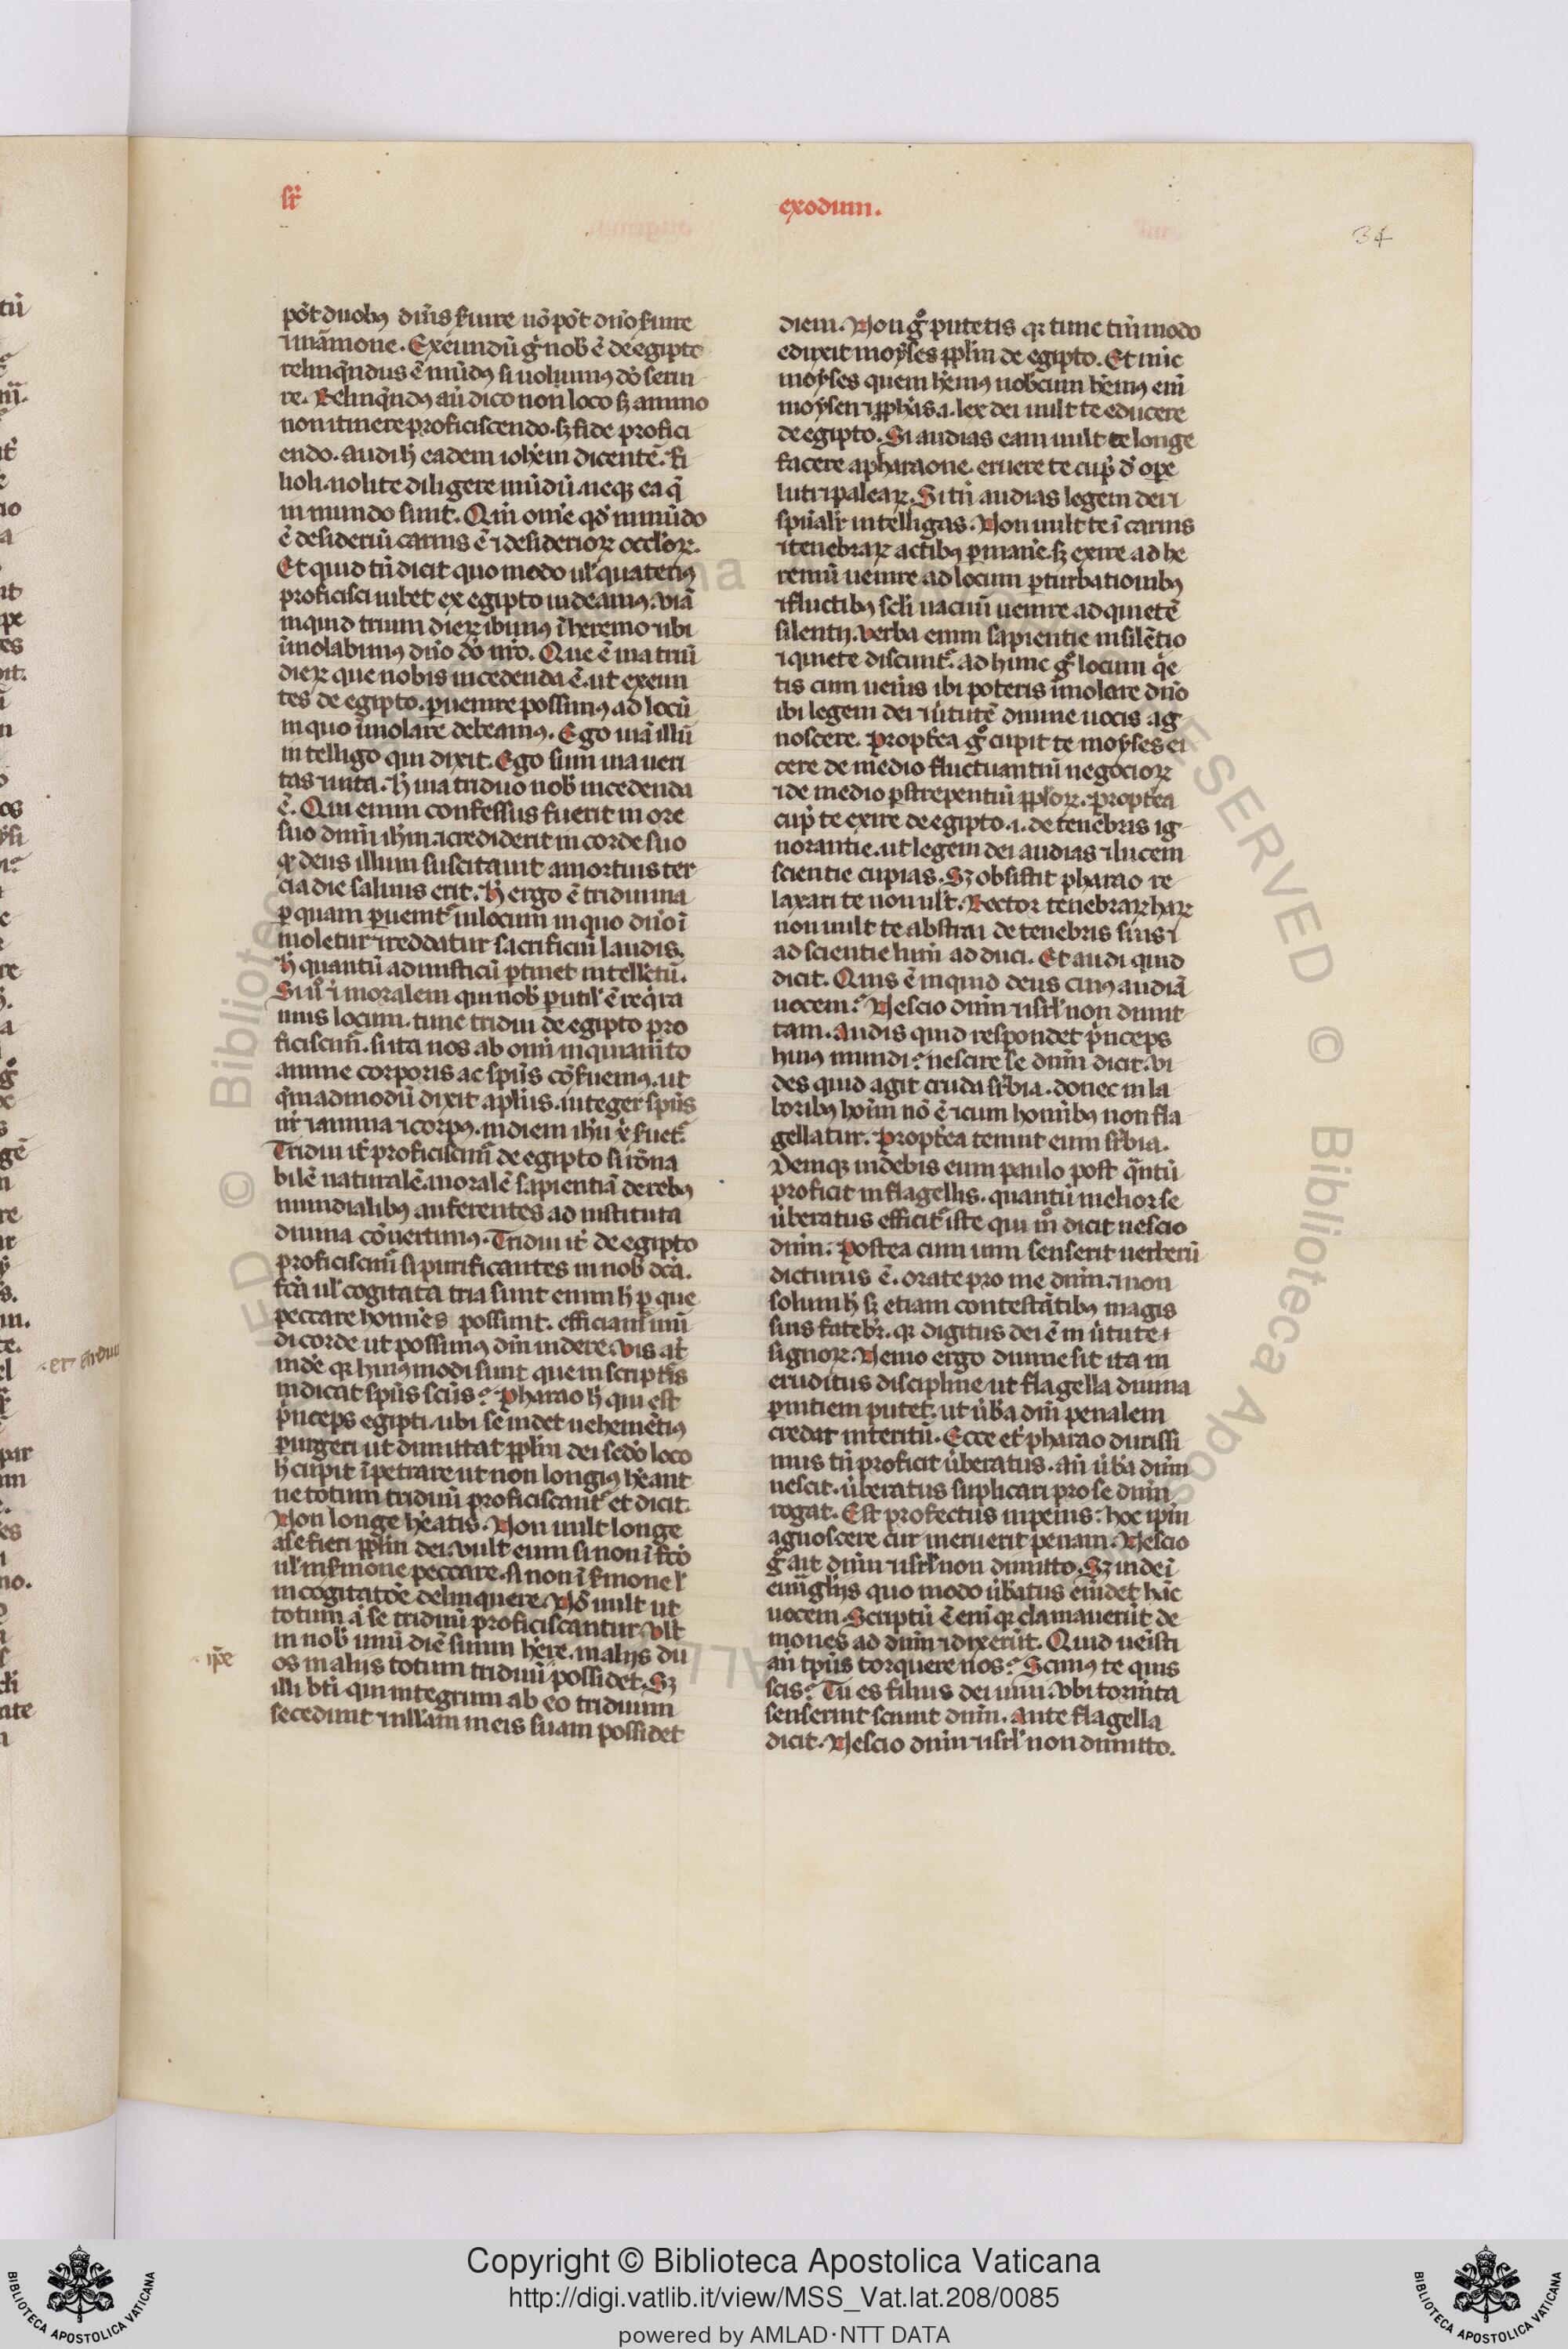 sr̄
exodum.
34
pōt duobꝫ dnīs ẜuire nō pōt dn̄o ẜuire
⁊ māmone. Exeundū gͦ nob̄ ē de egipto
relinq̄ndus ē mūdꝰ si uolumꝰ dō serui
re. Relinq̄ndꝰ aū dico non loco sꝫ animo
non itinere proficiscendo. sꝫ fide profici
endo. audi h̄ eadem ioh̄em dicentē. fi
lioli. nolite diligere mūdū. neqꝫ ea q̄
in mundo sunt. Qm̄ om̄e qd̄ ī mūdo
ē desideriū carnis ē ⁊ desiderioꝝ occl̓oꝝ.
Et quid tn̄ dicit quo modo ul̓ quatenꝰ
proficisci iubet ex egipto uideamꝰ. viā
inquid trium dieꝝ ibimꝰ ī heremo ⁊ ibi
īmolabimus dn̄o dō nr̄o. Que ē uia triū
dieꝝ que nobis incedenda ē. ut exeun
tes de egipto. ꝑuenire possimꝰ ad locū
in quo īmolare debeamꝰ. Ego uiā illū
intelligo qui dixit. Ego sum uia ueri
tas ⁊ uita. h̄ uia triduo nob̄ incedenda
ē. Qui enim confessus fuerit in ore
suo dnm̄ ih̄m. ⁊ crediderit in corde suo
qꝛ deus illum suscitauit a mortuis ter
cia die saluus erit. h̄ ergo ē triduina
ꝑ quam ꝑuenit᷑ in locum in quo dn̄o ī
moletur ⁊ reddatur sacrificiū laudis.
h̄ quantū ad misticū ꝑtinet intell̓ctū.
Si uͦ ⁊ moralem qui nob̄ ꝑutil̓ ē reqͥra
mus locum. tunc tridui de egipto pro
ficiscim᷑. si ita nos ab om̄i inquinam̄to
anime corporis ac sp̄us cōẜuemꝰ. ut
qͥmadmodū dixit apl̄us. integer sp̄us
nr̄ ⁊ anima ⁊ corpꝰ. in diem ih̄u xp̄i ẜuet᷑.
Tridui it̓ proficiscim᷑ de egipto si rōna
bilē naturalē. moralē sapientiā de rebꝫ
mundialibꝫ auferentes ad instituta
diuina cōuertimꝰ. Tridui it̓ de egipto
proficiscim᷑ si purificantes in nob̄ dcā.
fcā ul̓ cogitata tria sunt enim h̄ ꝑ que
peccare homīes possunt. efficiam̄ mū
di corde ut possimꝰ dm̄ uidere. Vis at̄
uidē qꝛ huiꝰmodi sunt que in scripturis
indicat sp̄us scūs? Pharao h̄ qui est
pͥnceps egipti. ubi se uidet uehemētiꝰ
ꝑurgeri ut dimittat ppl̄m dei sedō loco
h̄ cupit īpetrare ut non longiꝰ h̄eant
ne totum triduū proficiscant᷑ et dicit.
Non longe h̄eatis. Non uult longe
a se fieri ppl̄m dei. vult eum si non ī fcō
ul̓ in ẜmone peccare. ⁊ non ī ẜmone l̓
in cogitatōe delinquere. Nō uult ut
totum a se triduū proficiscantur. Vlt
in nob̄ unū diē suum h̄ere. malijs du
os malijs totum triduū possidet. Sꝫ
illi bt̄i qui integrum ab eo triduum
secedunt ⁊ null̓am in eis suam possidet
diem. Non gͦ putetis qꝛ tunc tn̄ modo
eduxit moẏses ppl̄m de egipto. Et nūc
moẏses quem h̄emꝰ nob̄cum h̄emꝰ eni̅
moẏsen ⁊ pph̄as .i. lex dei uult te educere
de egipto. Si audias eam uult te longe
facere a pharaone. eruere te cup̄ d̄ ope
luti ⁊ paleaꝝ. Si tn̄ audias legem dei ⁊
spūal̓r intelligas. Non uult te ī carnis
⁊ tenebraꝝ actibꝫ ꝑmane̅. sꝫ exire ad he
remū uenire ad locum ꝑturbationibꝫ
⁊ fluctibꝫ scl̓i uacuū uenire ad quietē
silentij. Verba enim sapientie in silētio
⁊ quiete discunt᷑. ad hunc gͦ locum qͥe
tis cum uen̄is ibi poteris īmolare dn̄o
ibi legem dei ⁊ ūtutē diuine uocis ag
noscere. Propt̓ea gͦ cupit te moẏses ei
cere de medio fluctuantiū negocioꝝ
⁊ de medio ꝑstrepentiū ppl̓oꝝ. propt̓ea
cup̄ te exire de egipto .i. de tenebris ig
norantie. ut legem dei audias ⁊ lucem
scientie cupias. Sꝫ obsistit pharao re
laxari te non ult̓. Rector tenebraꝝ haꝝ
non uult te abstrai de tenebris suis ⁊
ad scientie lum̄ adduci. Et audi quid
dicit. Quis ē inquid deus cuiꝰ audiā
uocem? Nescio dnm̄ ⁊ isrl̓ non dimit
tam. Audis quid respondet pͥnceps
huiꝰ mundi? nescire se dnm̄ dicit. Vi
des quid agit cruda sr̄bia. donec in la
boribꝫ hoīm nō ē ⁊ cum homībꝫ non fla
gellatur. Propt̓ea tenuit eum sr̄bia.
Deniqꝫ uidebis eum paulo post qͣntū
proficit in flagellis. quantū melior se
ūberatus efficit᷑ iste qui mͦ dicit nescio
dnm̄. Postea cum uim senserit uerberū
dicturus ē. orate pro me dnm̄. ⁊ non
solum h̄ sꝫ etiam contestātibꝫ magis
suis fatebr̄. qꝛ digitus dei ē in ūtute ⁊
signoꝝ. Nemo ergo diuine sit ita in
eruditus discipline ut flagella diuina
ꝑnitiem putet. ut ūb̄a dn̄i penalem
credat interitū. Ecce et̄ pharao durissi
mus tn̄ proficit ūberatus. an̄ ūb̄a dnm̄
nescit. ūberatus suplicari pro se dnm̄
rogat. Est profectus in penis: hoc ipm̄
agnoscere cur meruerit penam. Nescio
gͦ ait dnm̄ ⁊ isrl̓ non dimitto. Sꝫ uide ī
euuāglijs quo modo ūb̓atus em̄det hāc
uocem. Scriptū ē eni̅ qꝛ clamauerūt de
mones ad dnm̄ ⁊ dixerūt. Quid uēisti
an̄ tp̄us torquere nos? Scimꝰ te quis
scis? Tu es filius dei uiui. Vbi torm̄ta
senserunt sciunt dnm̄. Ante flagella
dicit. Nescio dnm̄ ⁊ isrl̓ non dimitto.
ip̄e
Copyright © Biblioteca Apostolica Vaticana
http://digi.vatlib.it/view/MSS_Vat.lat.208/0085
powered by AMLAD·NTT DATA
BIBLIOTECA APOSTOLICA VATICANA
BIBLIOTECA APOSTOLICA VATICANA